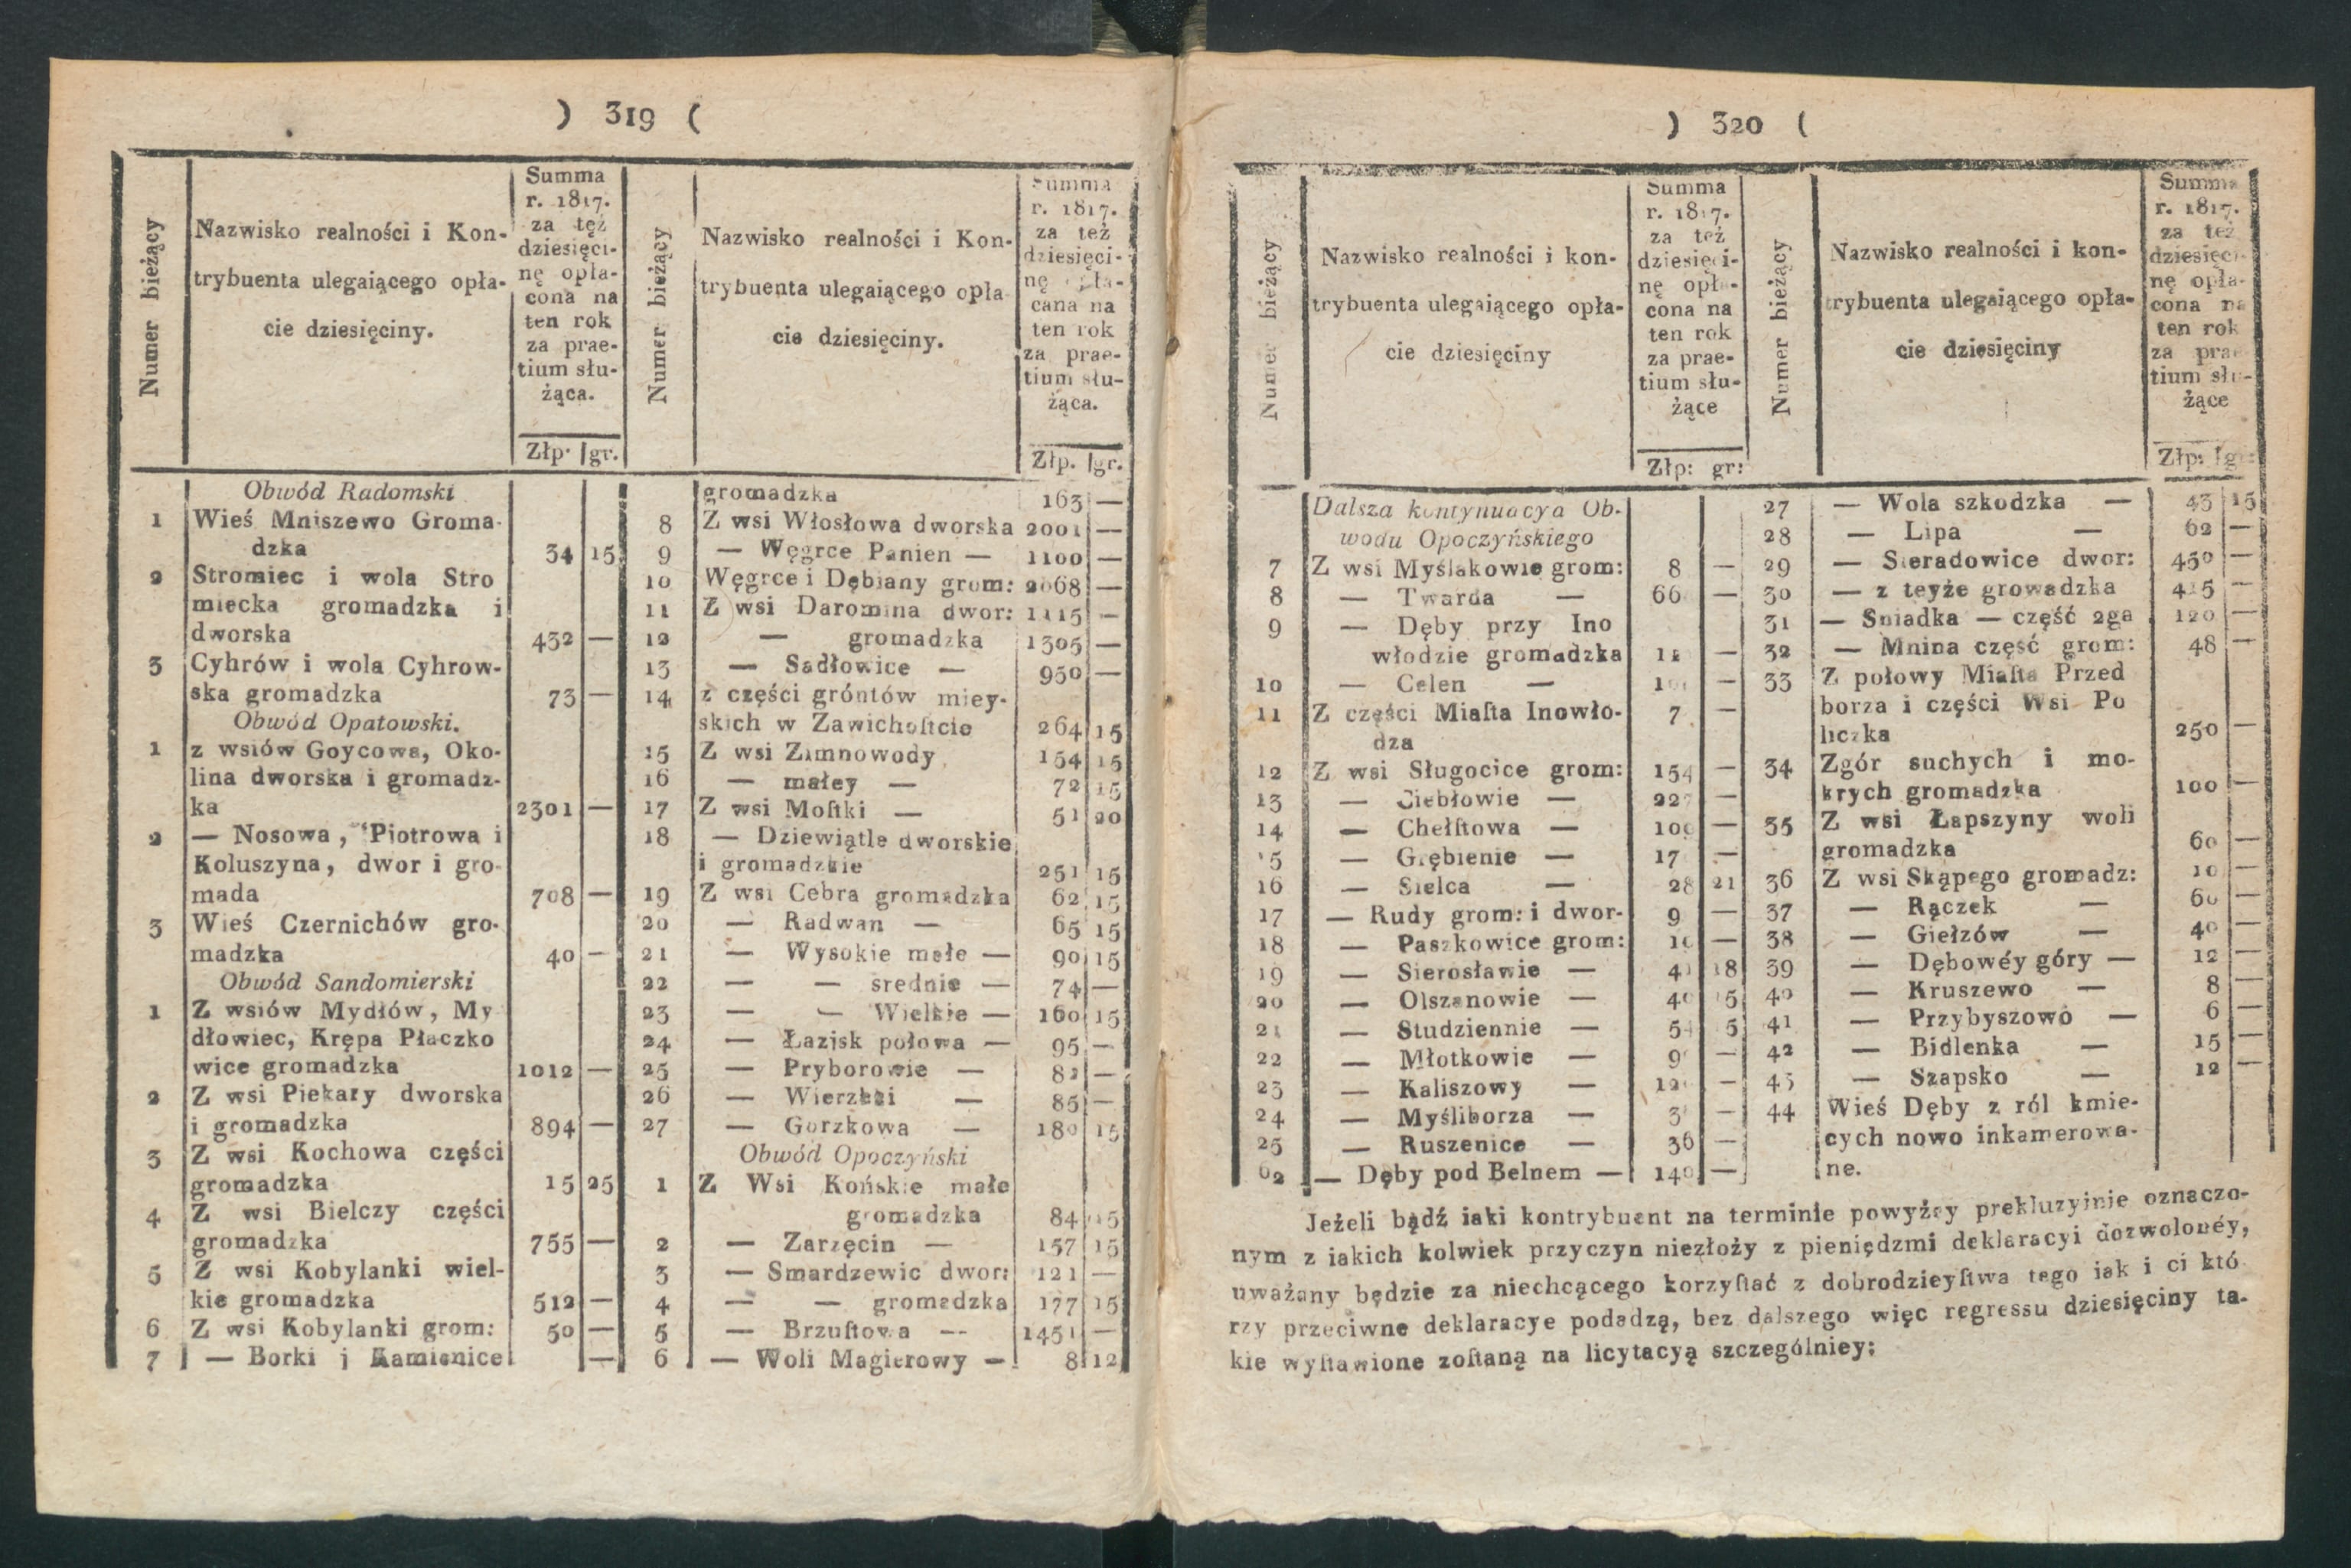 ) 319 (
Numer bieżący
Nazwisko realności i Kon-
trybuenta ulegaiącego opła-
cie dziesięciny.
Summa
r. 1817.
za też
dziesięci-
nę opła-
cona na
ten rok
za prae-
tium słu-
żąca.
Złp. gr.
Obwód Radomski
1 Wieś Mniszewo Groma-
dzka 34 15
2 Stromiec i wola Stro
miecka gromadzka i
dworska 432 —
3 Cyhrów i wola Cyhrow-
ska gromadzka 73 —
Obwód Opatowski.
1 z wsiów Goycowa, Oko-
lina dworska i gromadz-
ka 2301 —
2 — Nosowa, Piotrowa i
Koluszyna, dwor i gro-
mada 708 —
3 Wieś Czernichów gro-
madzka 40 —
Obwód Sandomierski
1 Z wsiów Mydłów, My
dłowiec, Krępa Płaczko
wice gromadzka 1012 —
2 Z wsi Piekary dworska
i gromadzka 894 —
3 Z wsi Kochowa części
gromadzka 15 25
4 Z wsi Bielczy części
gromadzka 755 —
5 Z wsi Kobylanki wiel-
kie gromadzka 512 —
6 Z wsi Kobylanki grom: 50 —
7 — Borki j Kamienice —
Numer bieżący
Nazwisko realności i Kon-
trybuenta ulegaiącego opła
cie dziesięciny.
Summa
r. 1817.
za też
dziesięci-
nę opła-
cana na
ten rok
za prae-
tium słu-
żąca.
Złp. gr.
gromadzka 163 —
8 Z wsi Włosłowa dworska 2001 —
9 — Węgrce Panien — 1100 —
10 Węgrce i Dębiany grom: 2068 —
11 Z wsi Daromina dwor: 1115 —
12 — gromadzka 1305 —
13 — Sadłowice — 950 —
14 z części gróntów miey-
skich w Zawichoſtcie 264 15
15 Z wsi Zimnowody 154 15
16 — małey — 72 15
17 Z wsi Moſtki — 51 20
18 — Dziewiątle dworskie
i gromadzkie 251 15
19 Z wsi Cebra gromadzka 62 15
20 — Radwan — 65 15
21 — Wysokie małe — 90 15
22 — — srednie — 74 —
23 — — Wielkie — 160 15
24 — Łazisk połowa — 95 —
25 — Pryborowie — 82 —
26 — Wierzbi — 85 —
27 — Gorzkowa — 180 15
Obwód Opoczyński
1 Z Wsi Końskie małe
gromadzka 84 15
2 — Zarzęcin — 157 15
3 — Smardzewic dwor: 121 —
4 — — gromadzka 177 15
5 — Brzuſtowa — 1451 —
6 — Woli Magierowy — 8 12
) 320 (
Numer bieżący
Nazwisko realności i kon-
trybuenta ulegaiącego opła-
cie dziesięciny
Summa
r. 1817.
za też
dziesięci-
nę opła-
cona na
ten rok
za prae-
tium słu-
żące
Złp: gr:
Dalsza kontynuacya Ob-
wodu Opoczyńskiego
7 Z wsi Myślakowie grom: 8 —
8 — Twarda — 66 —
9 — Dęby przy Ino
włodzie gromadzka —
10 — Celen — —
11 Z części Miaſta Inowło- 7 —
dza
12 Z wsi Sługocice grom: 154 —
13 — Ciebłowie — 227 —
14 — Chełſtowa — —
15 — Grębienie — 17 —
16 — Sielca — 28 21
17 — Rudy grom: i dwor- 9 —
18 — Paszkowice grom: —
19 — Sierosławie — 18
20 — Olszanowie —
21 — Studziennie — 5
22 — Młotkowie — —
23 — Kaliszowy — —
24 — Myśliborza — —
25 — Ruszenice — 36 —
— Dęby pod Belnem — 140 —
Numer bieżący
Nazwisko realności i kon-
trybuenta ulegaiącego opła-
cie dziesięciny
Summa
r. 1817.
za też
dziesięci-
nę opła-
cona na
ten rok
za prae
tium słu-
żące
Złp: gr:
27 — Wola szkodzka — 43 15
28 — Lipa — 62 —
29 — Sieradowice dwor: 450 —
30 — z teyże growadzka 415 —
31 — Sniadka — część 2ga 120 —
32 — Mnina część grom: 48 —
33 Z połowy Miaſta Przed
borza i części Wsi Po
liczka 250 —
34 Zgór suchych i mo-
krych gromadzka 100 —
35 Z wsi Łapszyny woli
gromadzka 60 —
36 Z wsi Skąpego gromadz: 10 —
37 — Rączek — 60 —
38 — Giełzów — 40 —
39 — Dębowéy góry — 12 —
40 — Kruszewo — 8 —
41 — Przybyszowo — 6 —
42 — Bidlenka — 15 —
43 — Szapsko — 12 —
44 Wieś Dęby z ról kmie-
cych nowo inkamerowa-
ne.
Jeżeli bądź iaki kontrybuent na terminie powyżey prekluzyinie oznaczo-
nym z iakich kolwiek przyczyn niezłoży z pieniędzmi deklaracyi dozwolonéy,
uważany będzie za niechcącego korzyſtać z dobrodzieyſtwa tego iak i ci któ
rzy przeciwne deklaracye podadzą, bez dalszego więc regressu dziesięciny ta-
kie wyſtawione zoſtaną na licytacyą szczególniey: